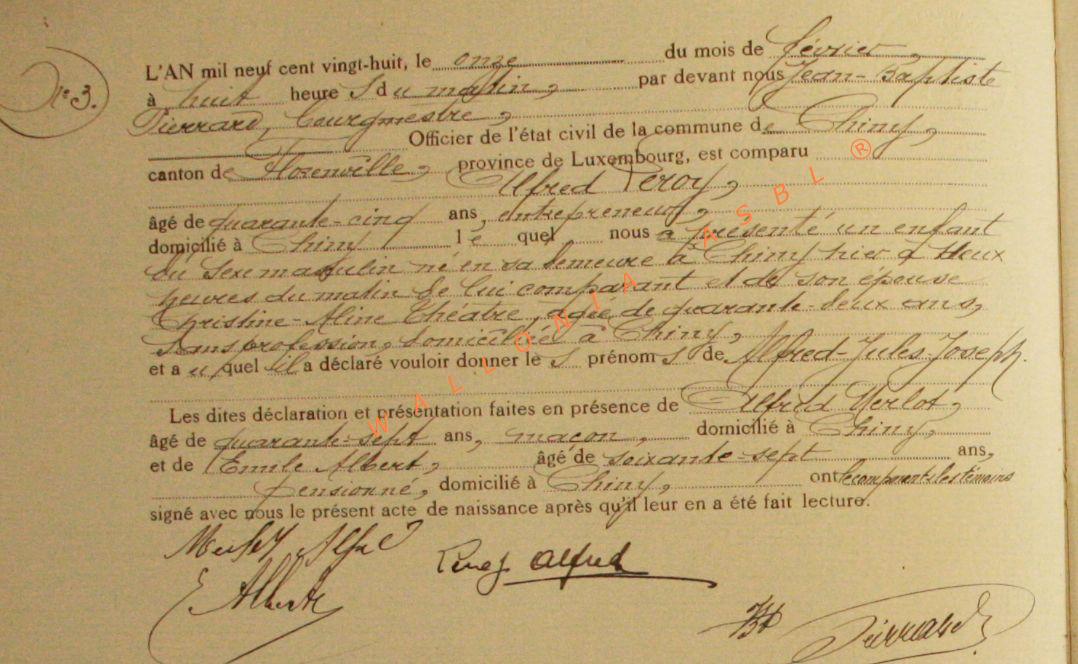 N° 3.
L'AN mil neuf cent vingt-huit, le onze du mois de février,
à huit heure s du matin, par devant nous Jean-Baptiste
Pierrard, bourgmestre,
Officier de l'état civil de la commune de Chiny,
canton de Florenville, province de Luxembourg, est comparu
Alfred Leroy,
âgé de quarante-cinq ans, entrepreneur,
domicilié à Chiny le quel nous a présenté un enfant
du sexe masculin né en sa demeure à Chiny hier à deux
heures du matin de lui comparant et de son épouse
Christine-Aline Théatre, agée de quarante-deux ans,
sans profession, domiciliée à Chiny,
et a u quel il a déclaré vouloir donner le s prénom s de Alfred-Jules-Joseph.
Les dites déclaration et présentation faites en présence de Alfred Merlot,
âgé de quarante-sept ans, maçon, domicilié à Chiny,
et de Emile Albert, âgé de soixante-sept ans,
pensionné, domicilié à Chiny, ont le comparant et les témoins
signé avec nous le présent acte de naissance après qu'il leur en a été fait lecture.
Alfred
E Albert
Leroy Alfred
JB Pierrard
WALLONIA ASBL ®